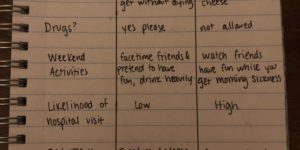 get without dying cheese
Drugs? yes please not allowed
Weekend facetime friends & watch friends
Activities pretend to have have fun while you
fun, drink heavily get morning sickness
Likelihood of Low High
hospital visit